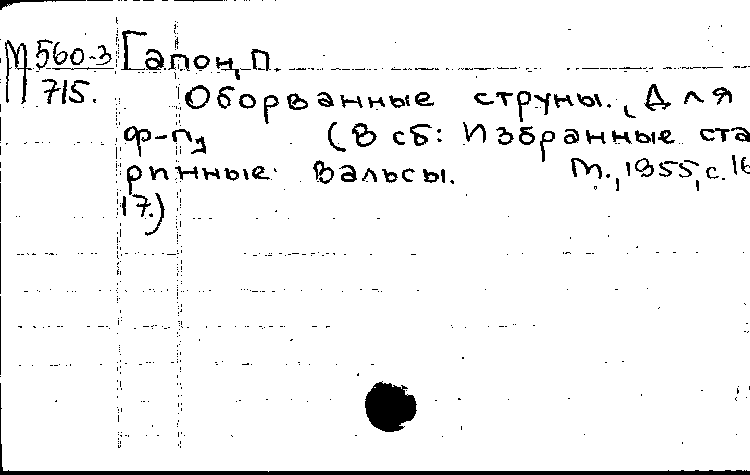 М 560-3 Гапон, П.
715. Оборванные струны. (Для
ф-п) (В сб: Избранные ста
ринные вальсы. М., 1955, с. 16
17.)